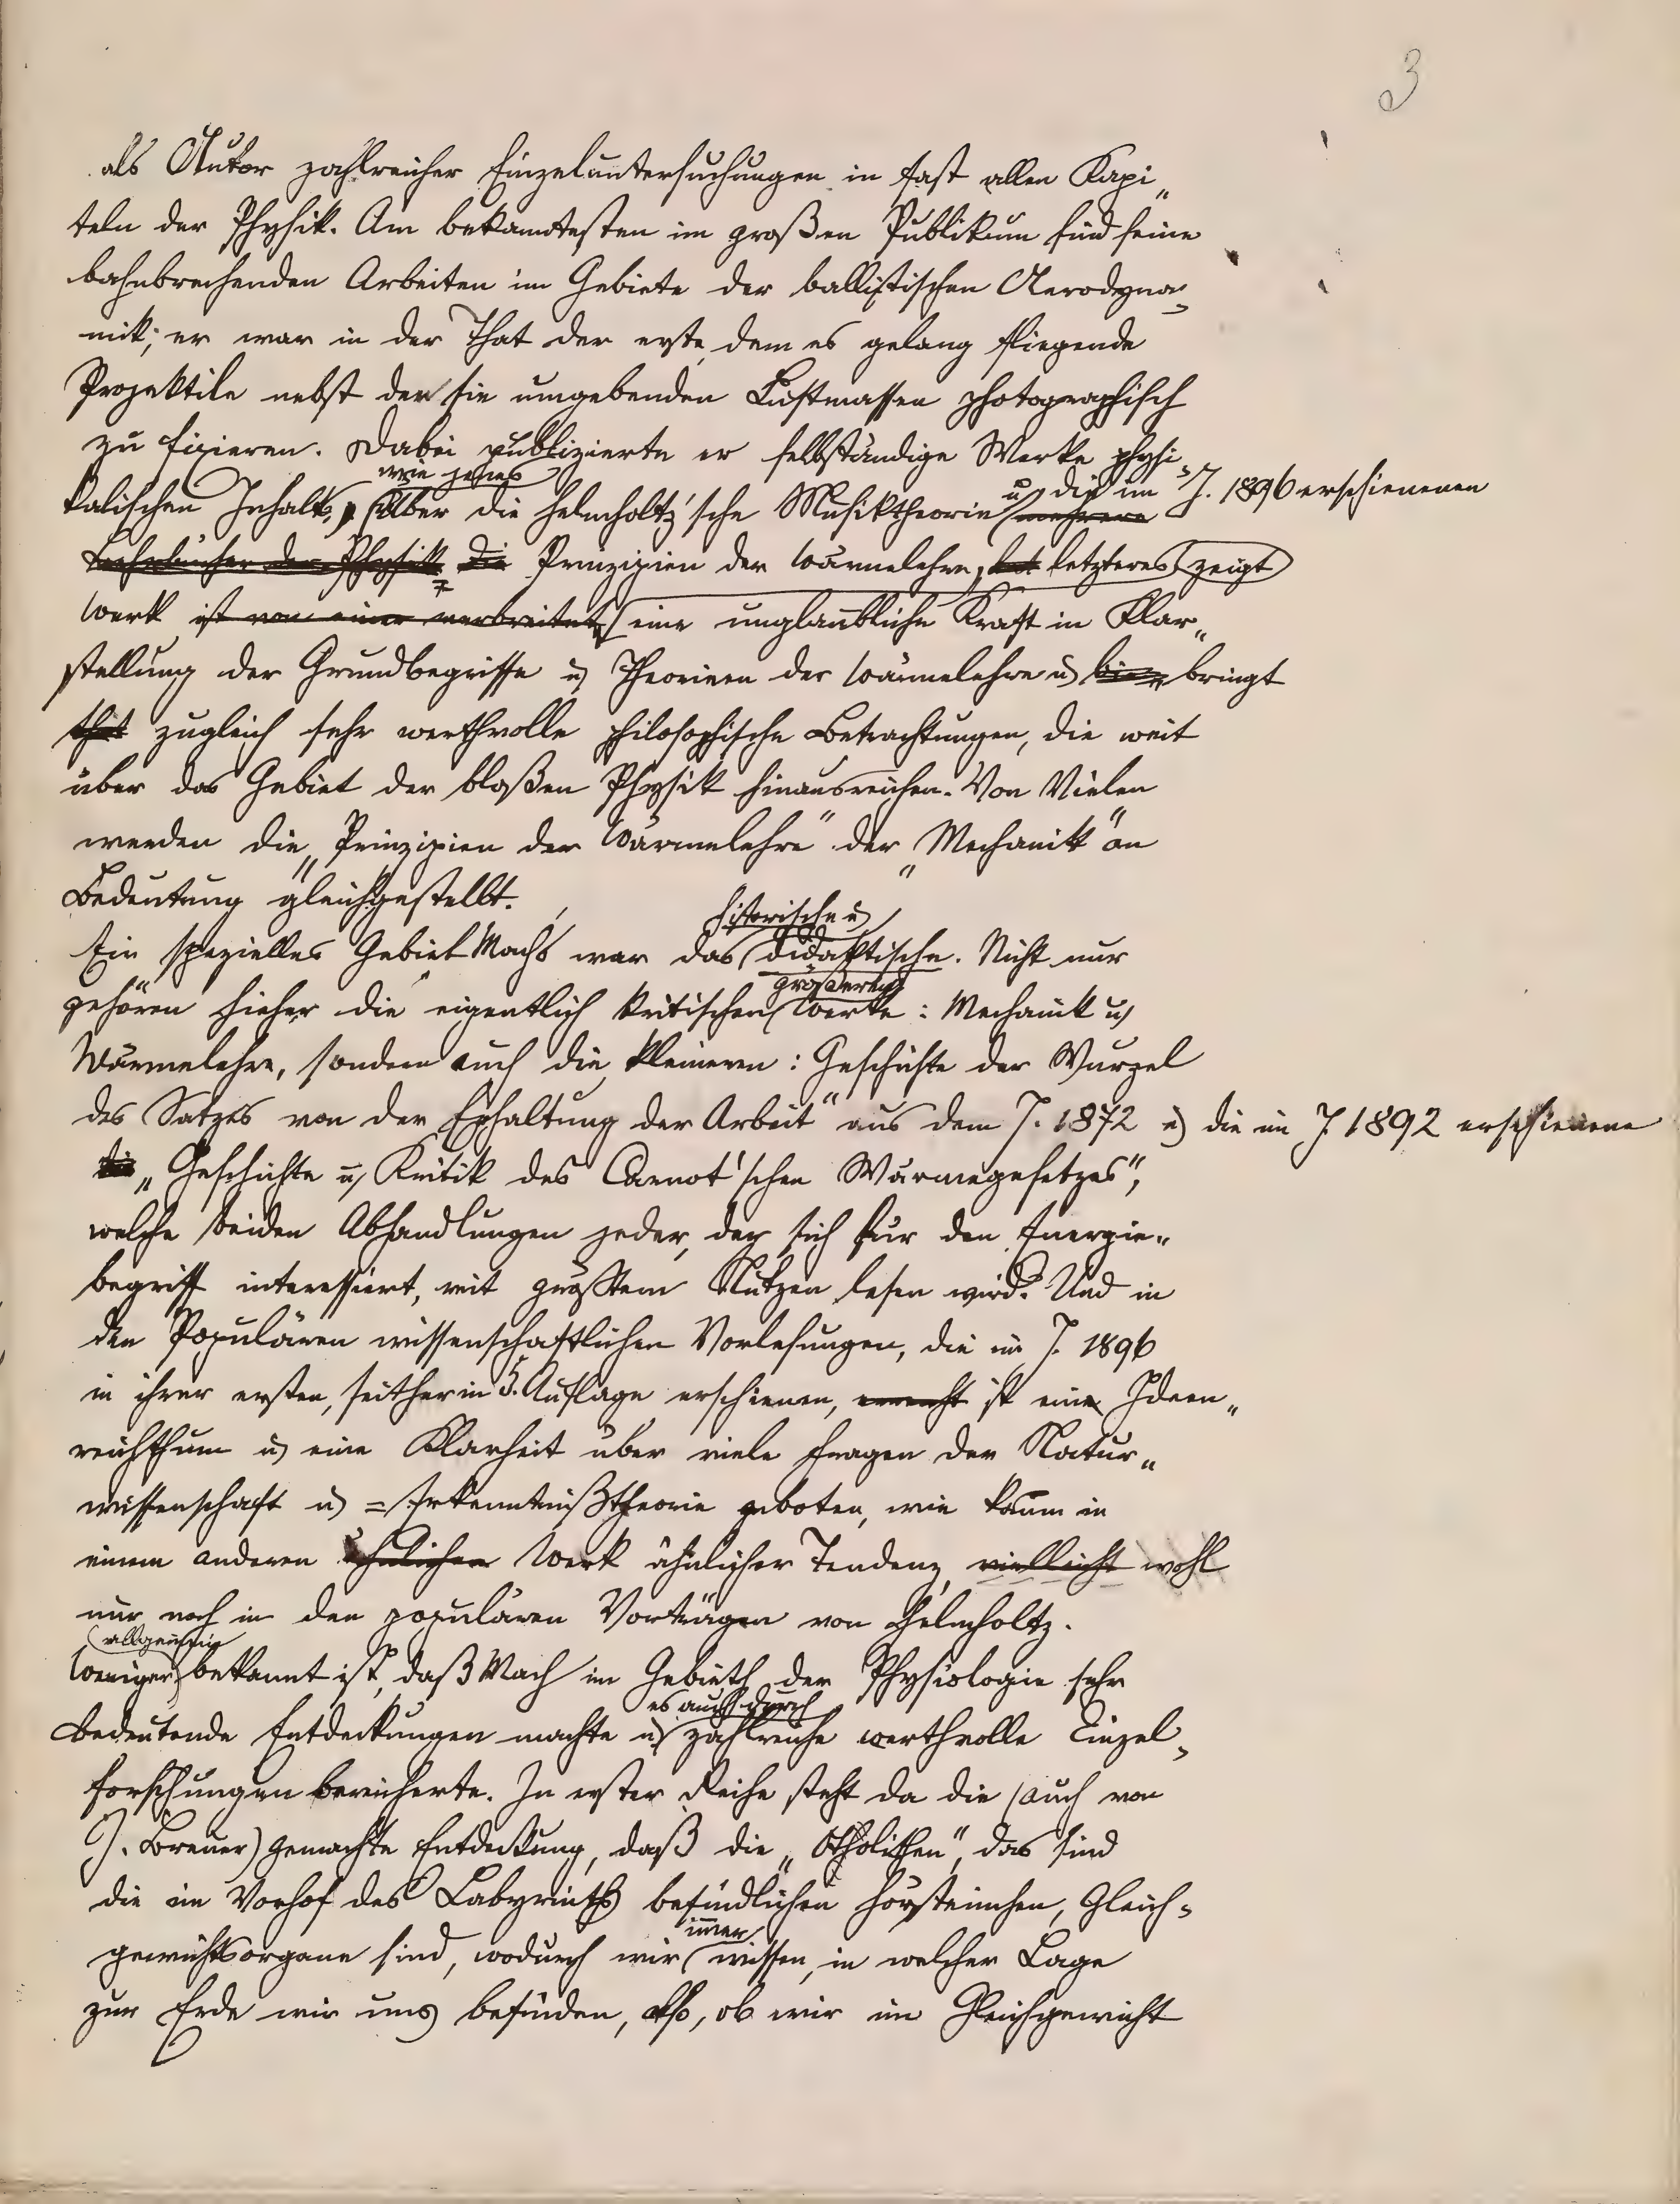 3
als Autor zahlreicher Einzeluntersuchungen in fast allen Kapi„
teln der Physik. Am bekanntesten im großen Publikum sind seine
bahnbrechenden Arbeiten im Gebiete der ballistischen Aerodyna-
mik; er war in der That der erste, dem es gelang fliegende
Projektile nebst den sie umgebenden Luftmassen photographisch
zu fixieren. Dabei publizierte er selbständige Werke physi-
wie jenes u. die im J. 1896 erschienenen
kalischen Inhalts, über die Helmholtz'sche Musiktheorie mehrere
Lehrbücher der Physik die Prinzipien der Wärmelehre, letzteres zeigt
Werk ist von einer verbreitet eine unglaubliche Kraft in Klar„
stellung der Grundbegriffe u. Theorieen der Wärmelehre u. bringt
zugleich sehr werthvolle philosophische Betrachtungen, die weit
über das Gebiet der bloßen Physik hinausreichen. Von Vielen
werden die „Prinzipien der Wärmelehre" der „Mechanik" an
Bedeutung gleichgestellt.
historische u.
Ein spezielles Gebiet Machs war das didaktische. Nicht nur
größeren
gehören hieher die eigentlich kritischen Werke: Mechanik u.
Wärmelehre, sondern auch die kleineren: Geschichte der Wurzel
des Satzes von der Erhaltung der Arbeit" aus dem J. 1872 u. die im J. 1892 erschienene
die „Geschichte u. Kritik des Carnot'schen Wärmegesetzes",
welche beiden Abhandlungen jeder, der sich für den Energie„
begriff interessiert, mit größtem Nutzen lesen wird. Und in
den Populären wissenschaftlichen Vorlesungen, die im J. 1896
in ihrer ersten, seither in 5. Auflage erschienen, ist ein Ideen„
reichthum u. eine Klarheit über viele Fragen der Natur„
wissenschaft u. =Erkenntnißtheorie geboten, wie kaum in
einem anderen ähnlichen Werk ähnlicher Tendenz, vielleicht wohl
nur noch in den populären Vorträgen von Helmholtz.
allgemein
Weniger bekannt ist, daß Mach im Gebieth der Physiologie sehr
es auch durch
bedeutende Entdeckungen machte u. zahlreiche werthvolle Einzel-
forschungen bereicherte. In erster Reihe steht da die (auch von
J. Breuer) gemachte Entdeckung, daß die „Otholithen", das sind
die im Vorhof des Labyrinths befindlichen Hörsteinchen, Gleich-
immer
gewichtsorgane sind, wodurch wir wissen, in welcher Lage
zur Erde wir uns befinden, also, ob wir im Gleichgewicht